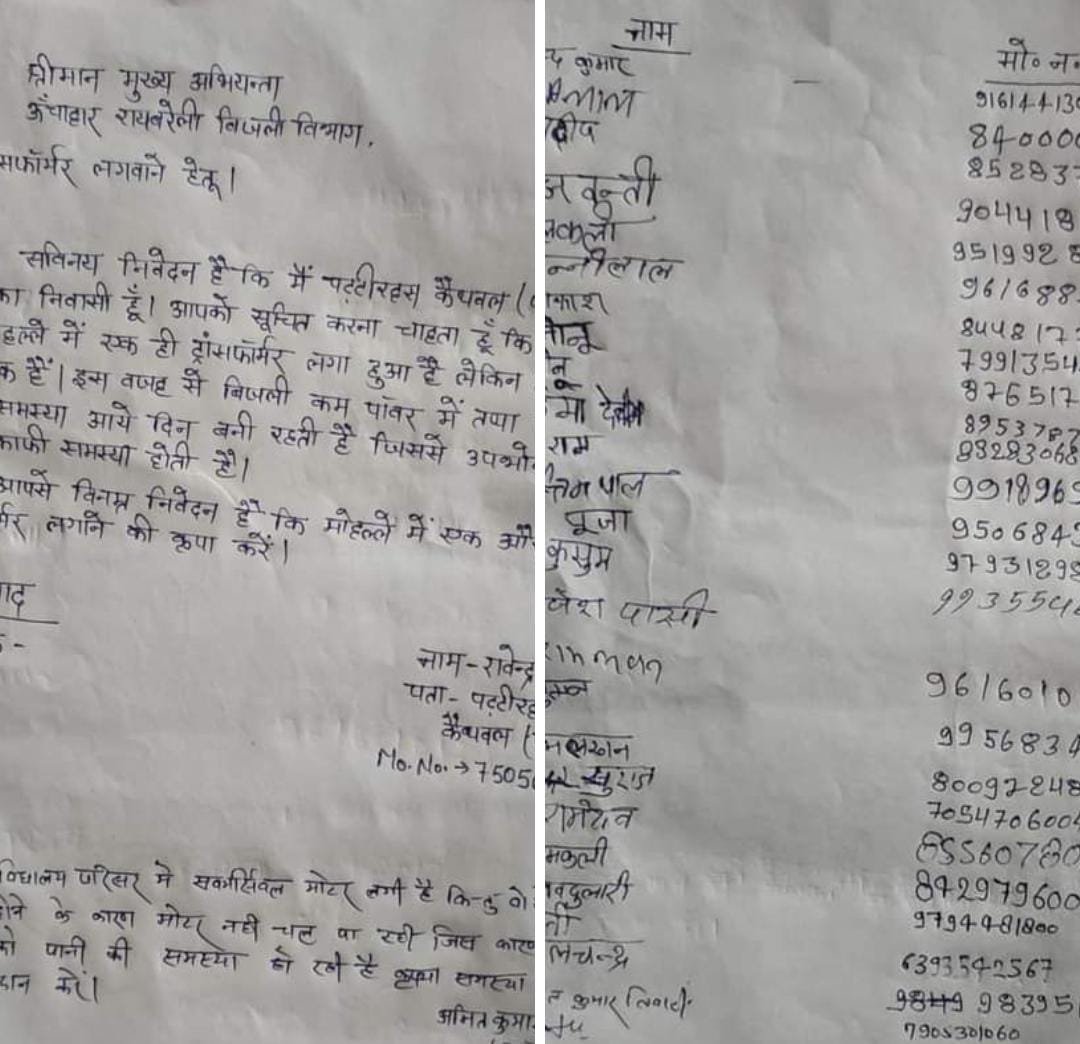 श्रीमान मुख्य अभियन्ता
ऊँचाहार रायबरेली बिजली विभाग,
सफॉर्मर लगवाने हेतू।
सविनय निवेदन है कि मैं पट्टीरहस कैथवल (
का निवासी हूँ। आपको सूचित करना चाहता हूँ कि
हल्ले में एक ही ट्रांसफॉर्मर लगा हुआ है लेकिन
क हैं। इस वजह से बिजली कम पॉवर में तथा
समस्या आये दिन बनी रहती है जिससे उपभो
काफी समस्या होती है।
आपसे विनम्र निवेदन है कि मोहल्ले में एक औ
र्मर लगाने की कृपा करें।
ाद
नाम-रावेन्द्र
पता- पट्टीरह
कैथवल (
Mo. No. → 7505
विद्यालय परिसर में सबमर्सिबल मोटर लगी है किन्तु वो
होने के कारण मोटर नही चल पा रही जिस कारण
को पानी की समस्या हो रही है कृपया समस्या
दान करें।
अमित कुमा
नाम
मो० न०
द कुमार
9161441 3
लाल
84-0000
दीप
85283
वन्ती
904418
कली
951992
न्नीलाल
961688
काश
844817
मोनू
7991354
न
876517
मा देवी
8953787
राम
99283068
त्तम पाल
991896
पूजा
950684
कुसुम
97931298
जेश पासी
993554
961601 0
मलखान
9956834
सुराज
80092848
रामदेव
7054706004
मकली
8556078
वदुलारी
8429796 00
ती
9794481800
लचन्द्र
6393542567
त कुमार त्रिवादी
9849 98395
7905301060